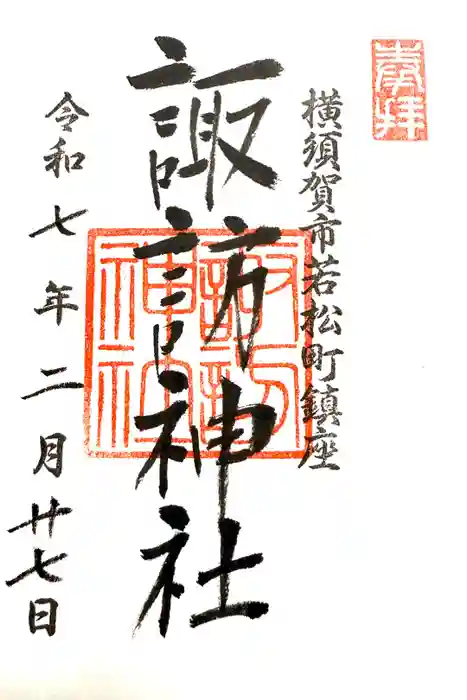 奉拝
横須賀市若松町鎮座
諏訪神社
諏訪神社
令和七年二月廿七日